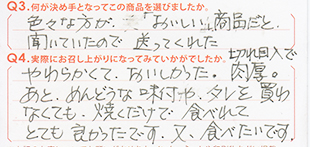 Q3.何が決め手となってこの商品を選びましたか。
色々な方が、「おいしい」商品だと
聞いていたので 送ってくれた
Q4.実際にお召し上がりになってみていかがでしたか。
切れ目入で
やわらかくて、おいしかった。肉厚。
あと、めんどうな味付や、タレを買わ
なくても、焼くだけで 食べれて
とても良かったです。又、食べたいです。